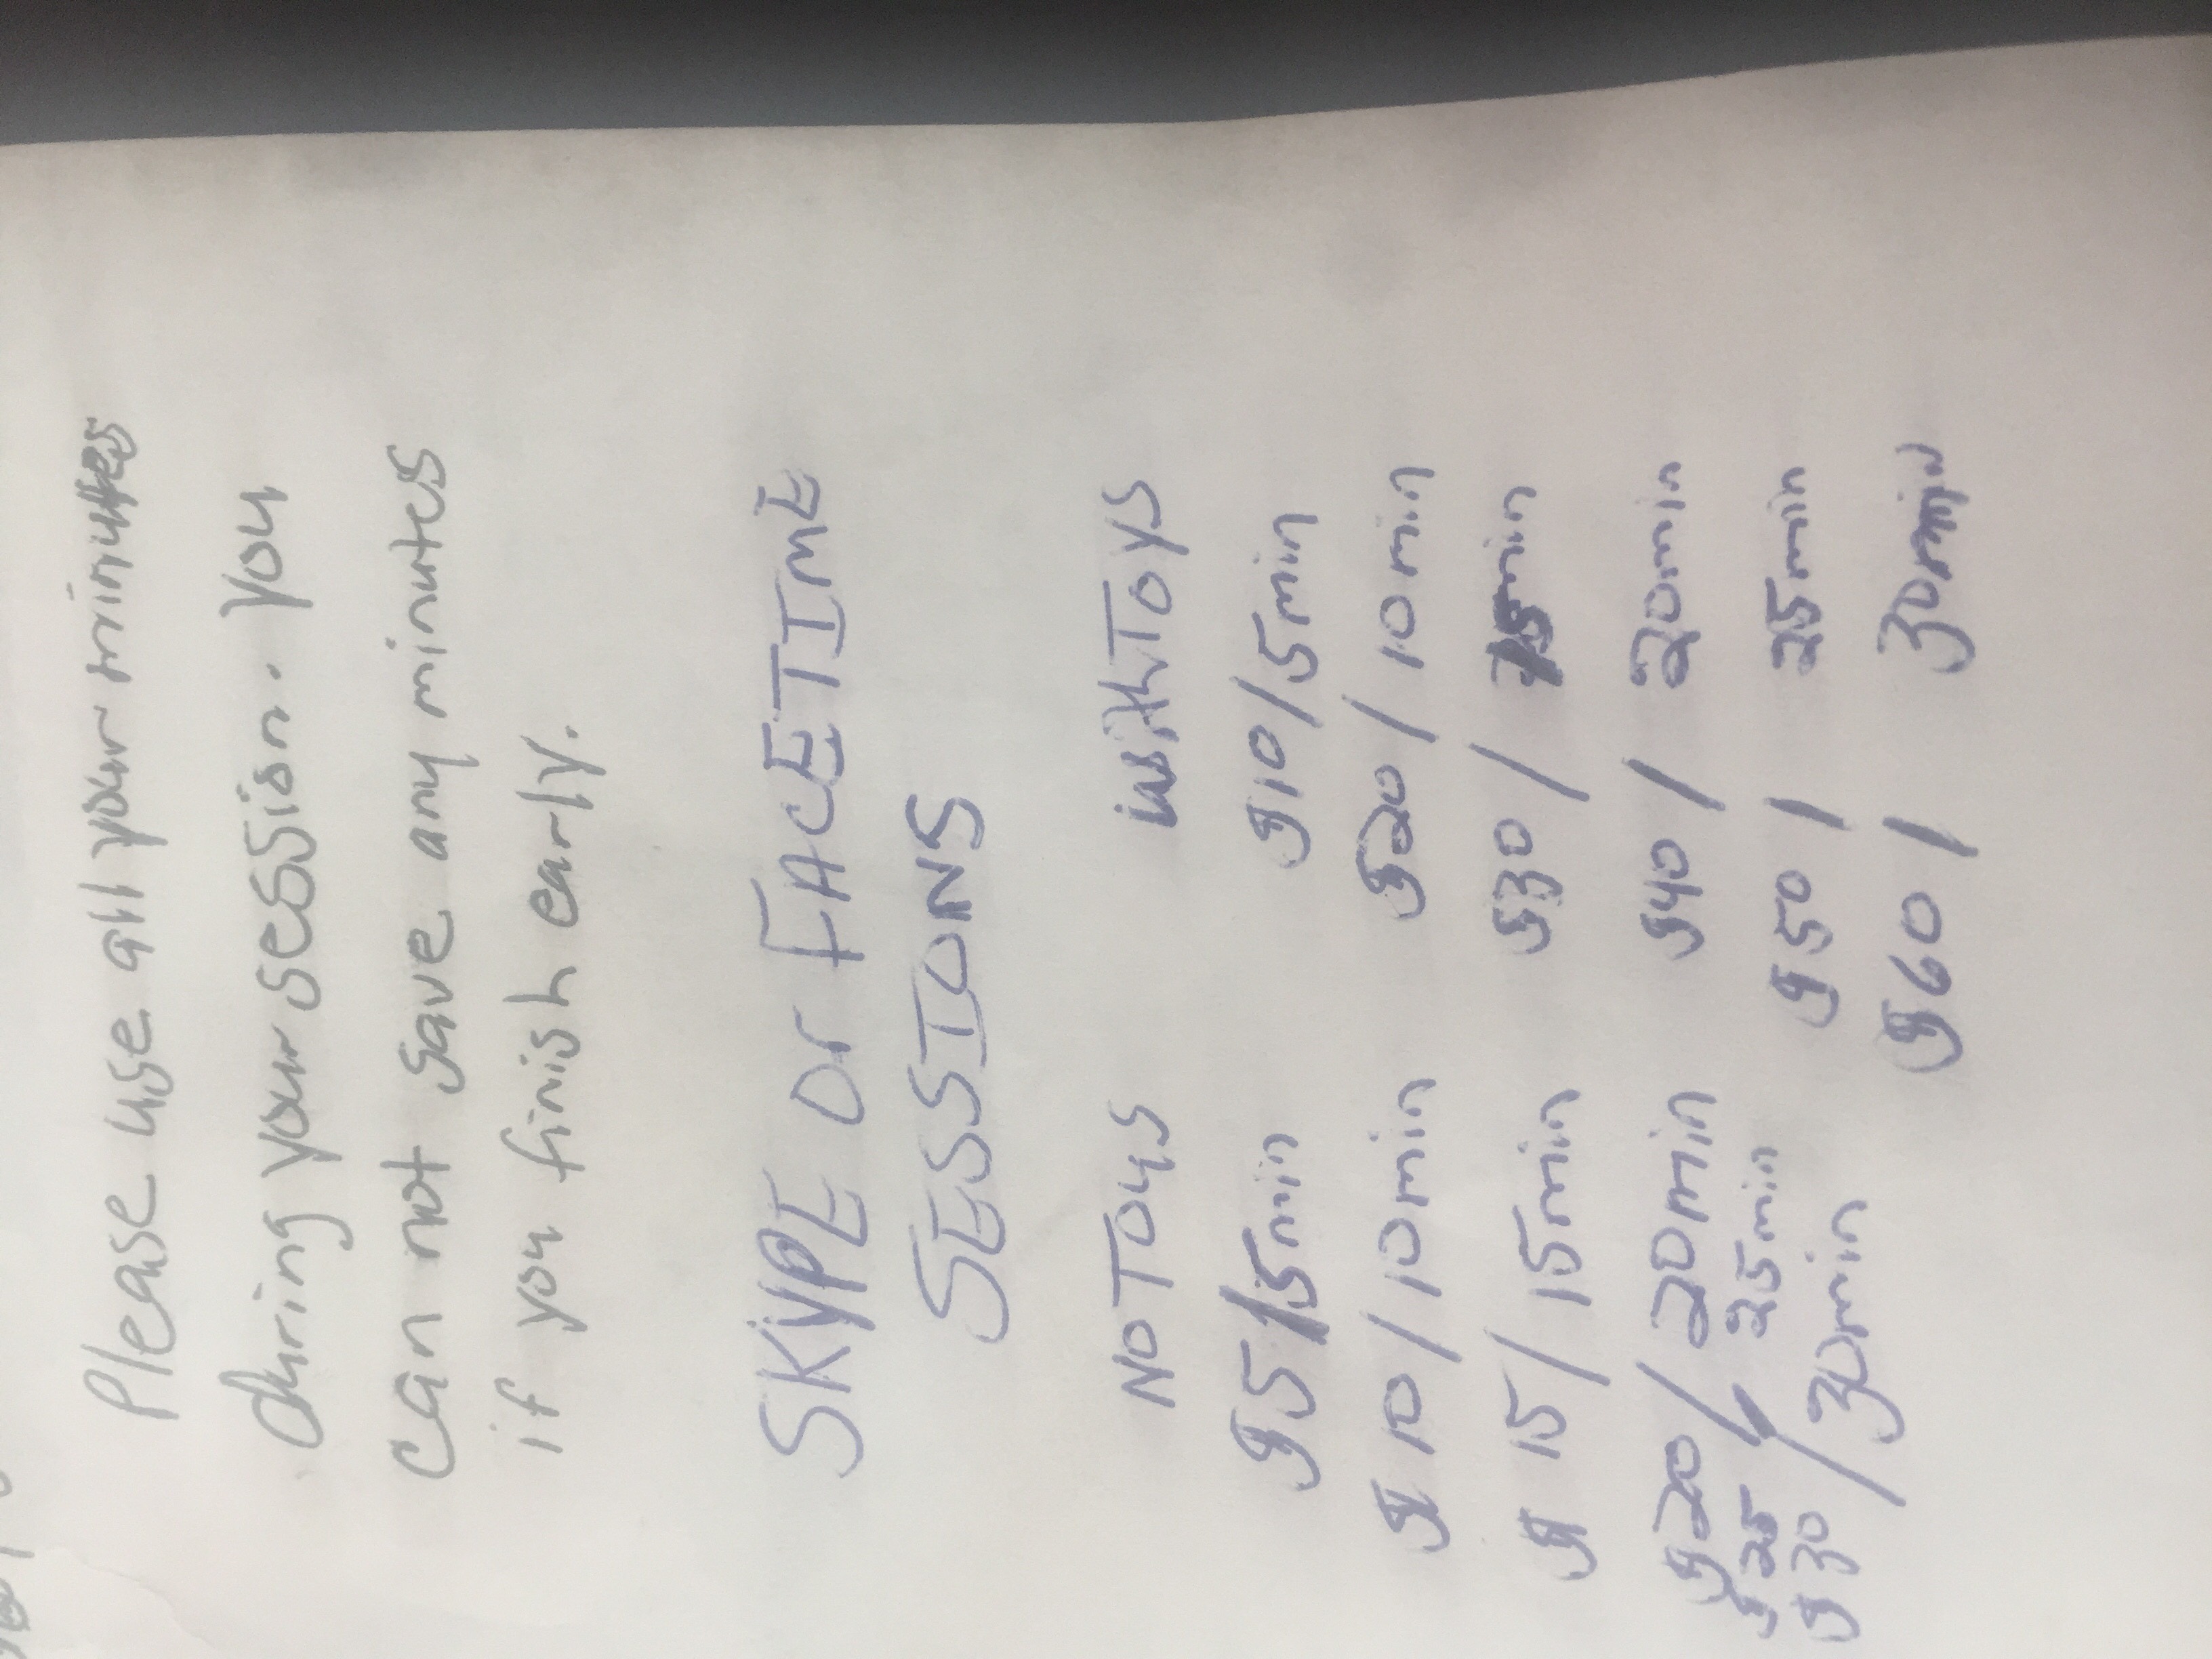 Please use all your minutes
during your session. You
can not save any minutes
if you finish early.
SKYPE Or FACETIME
SESSIONS
NO TOYS with TOYS
$5/5min $10/5min
$10/10min $20/10min
$15/15min $30/15min
$20/20min $40/20min
$25/25min $50/25min
$30/30min $60/30min